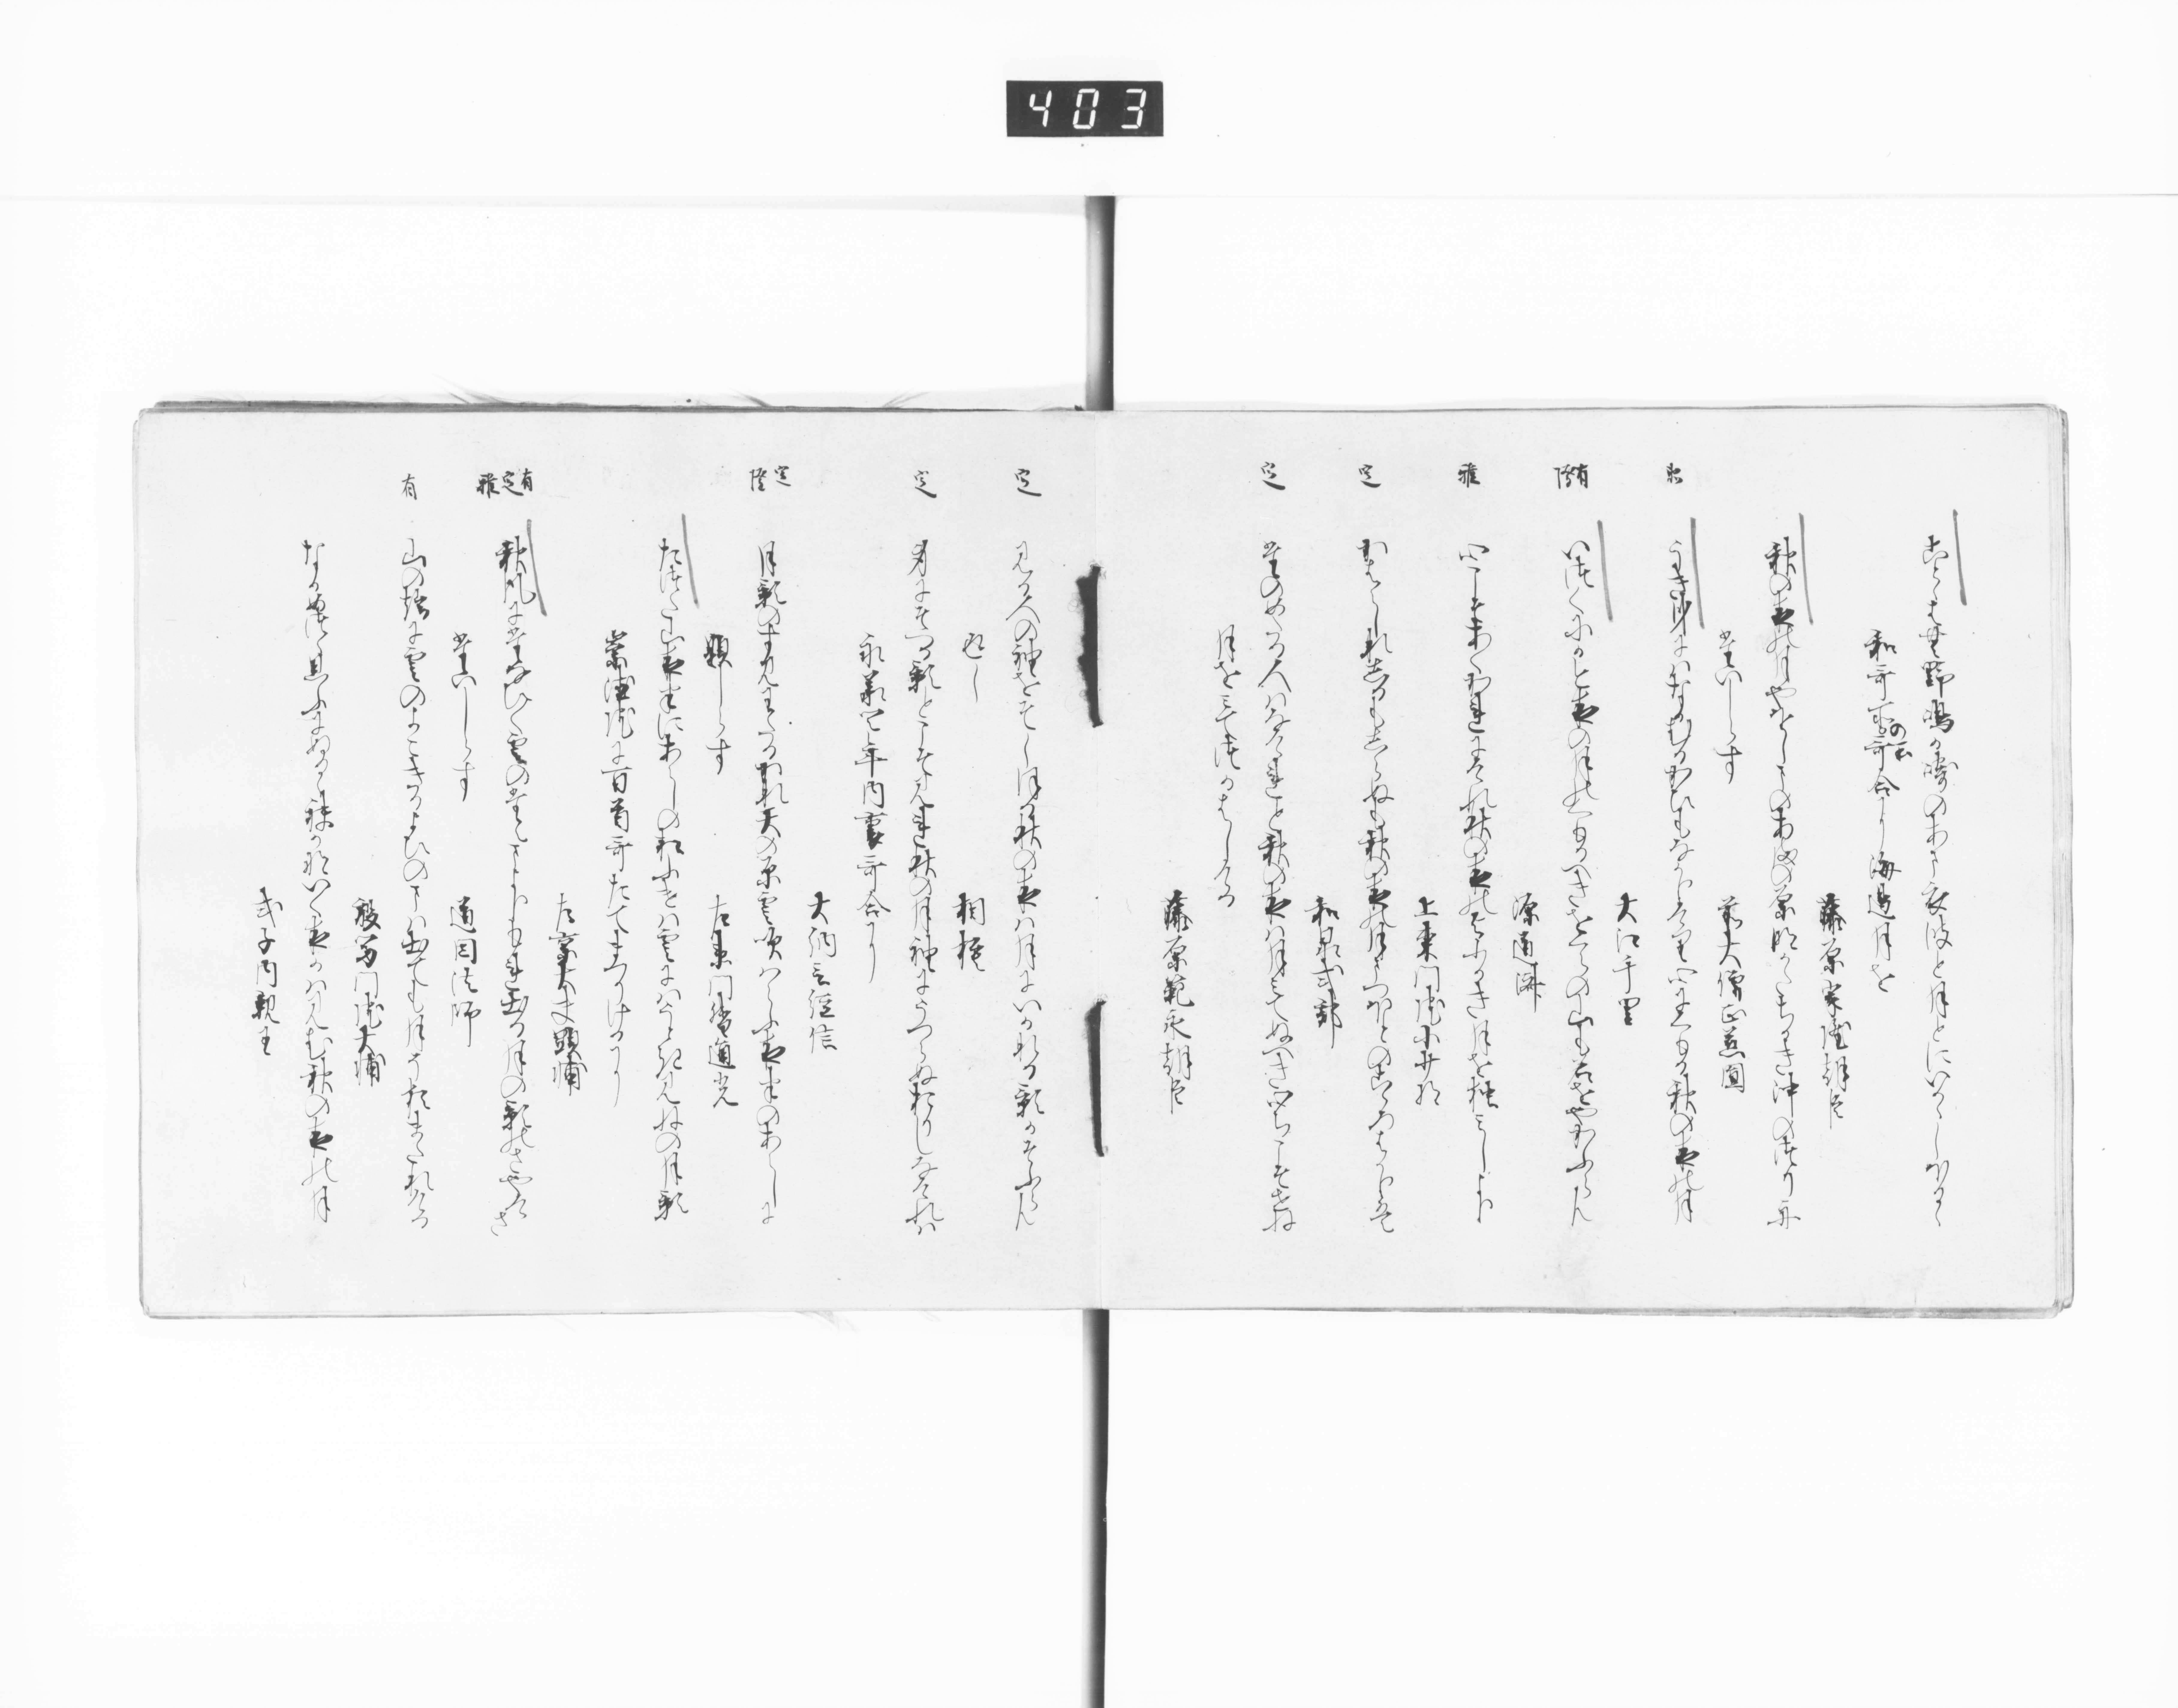 ことゝはむ野嶋か崎のあま衣波と月とにいかゝしほるゝ
和哥所の哥合に海邊月を
藤原家隆朝臣
秋の夜の月やをしまのあまの原明かたちかき沖の釣舟
たいしらす
前大僧正慈円
うき身にはなかむるかひもなかりけり心にくもる秋の夜の月
大江千里
有
隆
いつくにかこよひの月のくもるへきをくらの山も名をやかふらん
源道済
雅
心こそあくかれにけれ秋の夜の夜ふかき月を獨みしより
上東門院小少将
定
かはらしなしるもしらぬも秋の夜の月まつほとの心はかりは
和泉式部
定
たのめたる人はなけれと秋の夜は月みてぬへき心ちこそせね
月をみてつかはしける
藤原範永朝臣
定
見る人の袖をそしほる秋の夜は月にいかなる影かそふらん
返し
相模
定
身にそへる影とこそ見れ秋の月袖にうつらぬおりしなけれは
永承四年内裏哥合に
大納言経信
定
隆
月影のすみわたるかな天の原雲吹はらふ夜半のあらしに
題しらす
左衛門督通光
たつた山夜半にあらしの松ふけは雲にはうとき見ねの月影
崇徳院に百首哥たてまつりけるに
左京大夫顕輔
有
定
雅
秋風にたなひく雲のたえまよりもれ出る月の影のさやけさ
たいしらす
道因法師
有
山の端に雲のよこきるよひのまは出ても月そ猶またれける
殷冨門院大輔
なかめつゝ思ふにぬるゝ袂かないく夜かは見む秋の夜の月
式子内親王
403